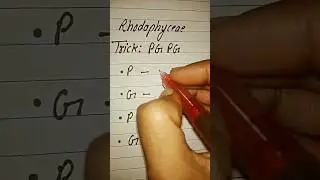 Rhodophyceae
Trick: PG PG
• P –
• G –
• P
• G